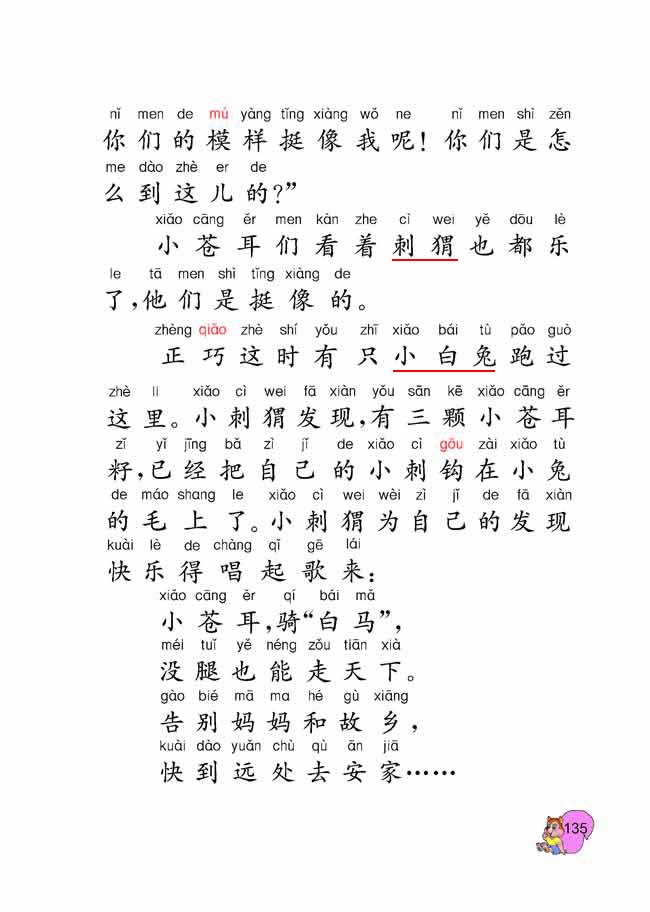 nǐ men de mú yàng tǐng xiàng wǒ ne nǐ men shì zěn
你们的模样挺像我呢！你们是怎
me dào zhè er de
么到这儿的？”
xiǎo cāng ěr men kàn zhe cì wei yě dōu lè
小苍耳们看着刺猬也都乐
le tā men shì tǐng xiàng de
了，他们是挺像的。
zhèng qiǎo zhè shí yǒu zhī xiǎo bái tù pǎo guò
正巧这时有只小白兔跑过
zhè li xiǎo cì wei fā xiàn yǒu sān kē xiǎo cāng ěr
这里。小刺猬发现，有三颗小苍耳
zǐ yǐ jīng bǎ zì jǐ de xiǎo cì gōu zài xiǎo tù
籽，已经把自己的小刺钩在小兔
de máo shang le xiǎo cì wei wèi zì jǐ de fā xiàn
的毛上了。小刺猬为自己的发现
kuài lè de chàng qǐ gē lái
快乐得唱起歌来：
xiǎo cāng ěr qí bái mǎ
小苍耳，骑“白马”，
méi tuǐ yě néng zǒu tiān xià
没腿也能走天下。
gào bié mā ma hé gù xiāng
告别妈妈和故乡，
kuài dào yuǎn chù qù ān jiā
快到远处去安家……
135